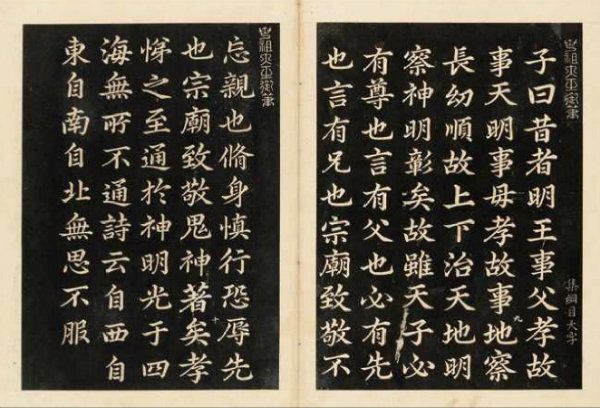 集綱目大字
子曰昔者明王事父孝故
事天明事母孝故事地察
九
長幼順故上下治天地明
察神明彰矣故雖天子必
有尊也言有父也必有先
也言有兄也宗廟致敬不
忘親也脩身慎行恐辱先
也宗廟致敬鬼神著矣孝
十
悌之至通於神明光于四
海無所不通詩云自西自
東自南自北無思不服